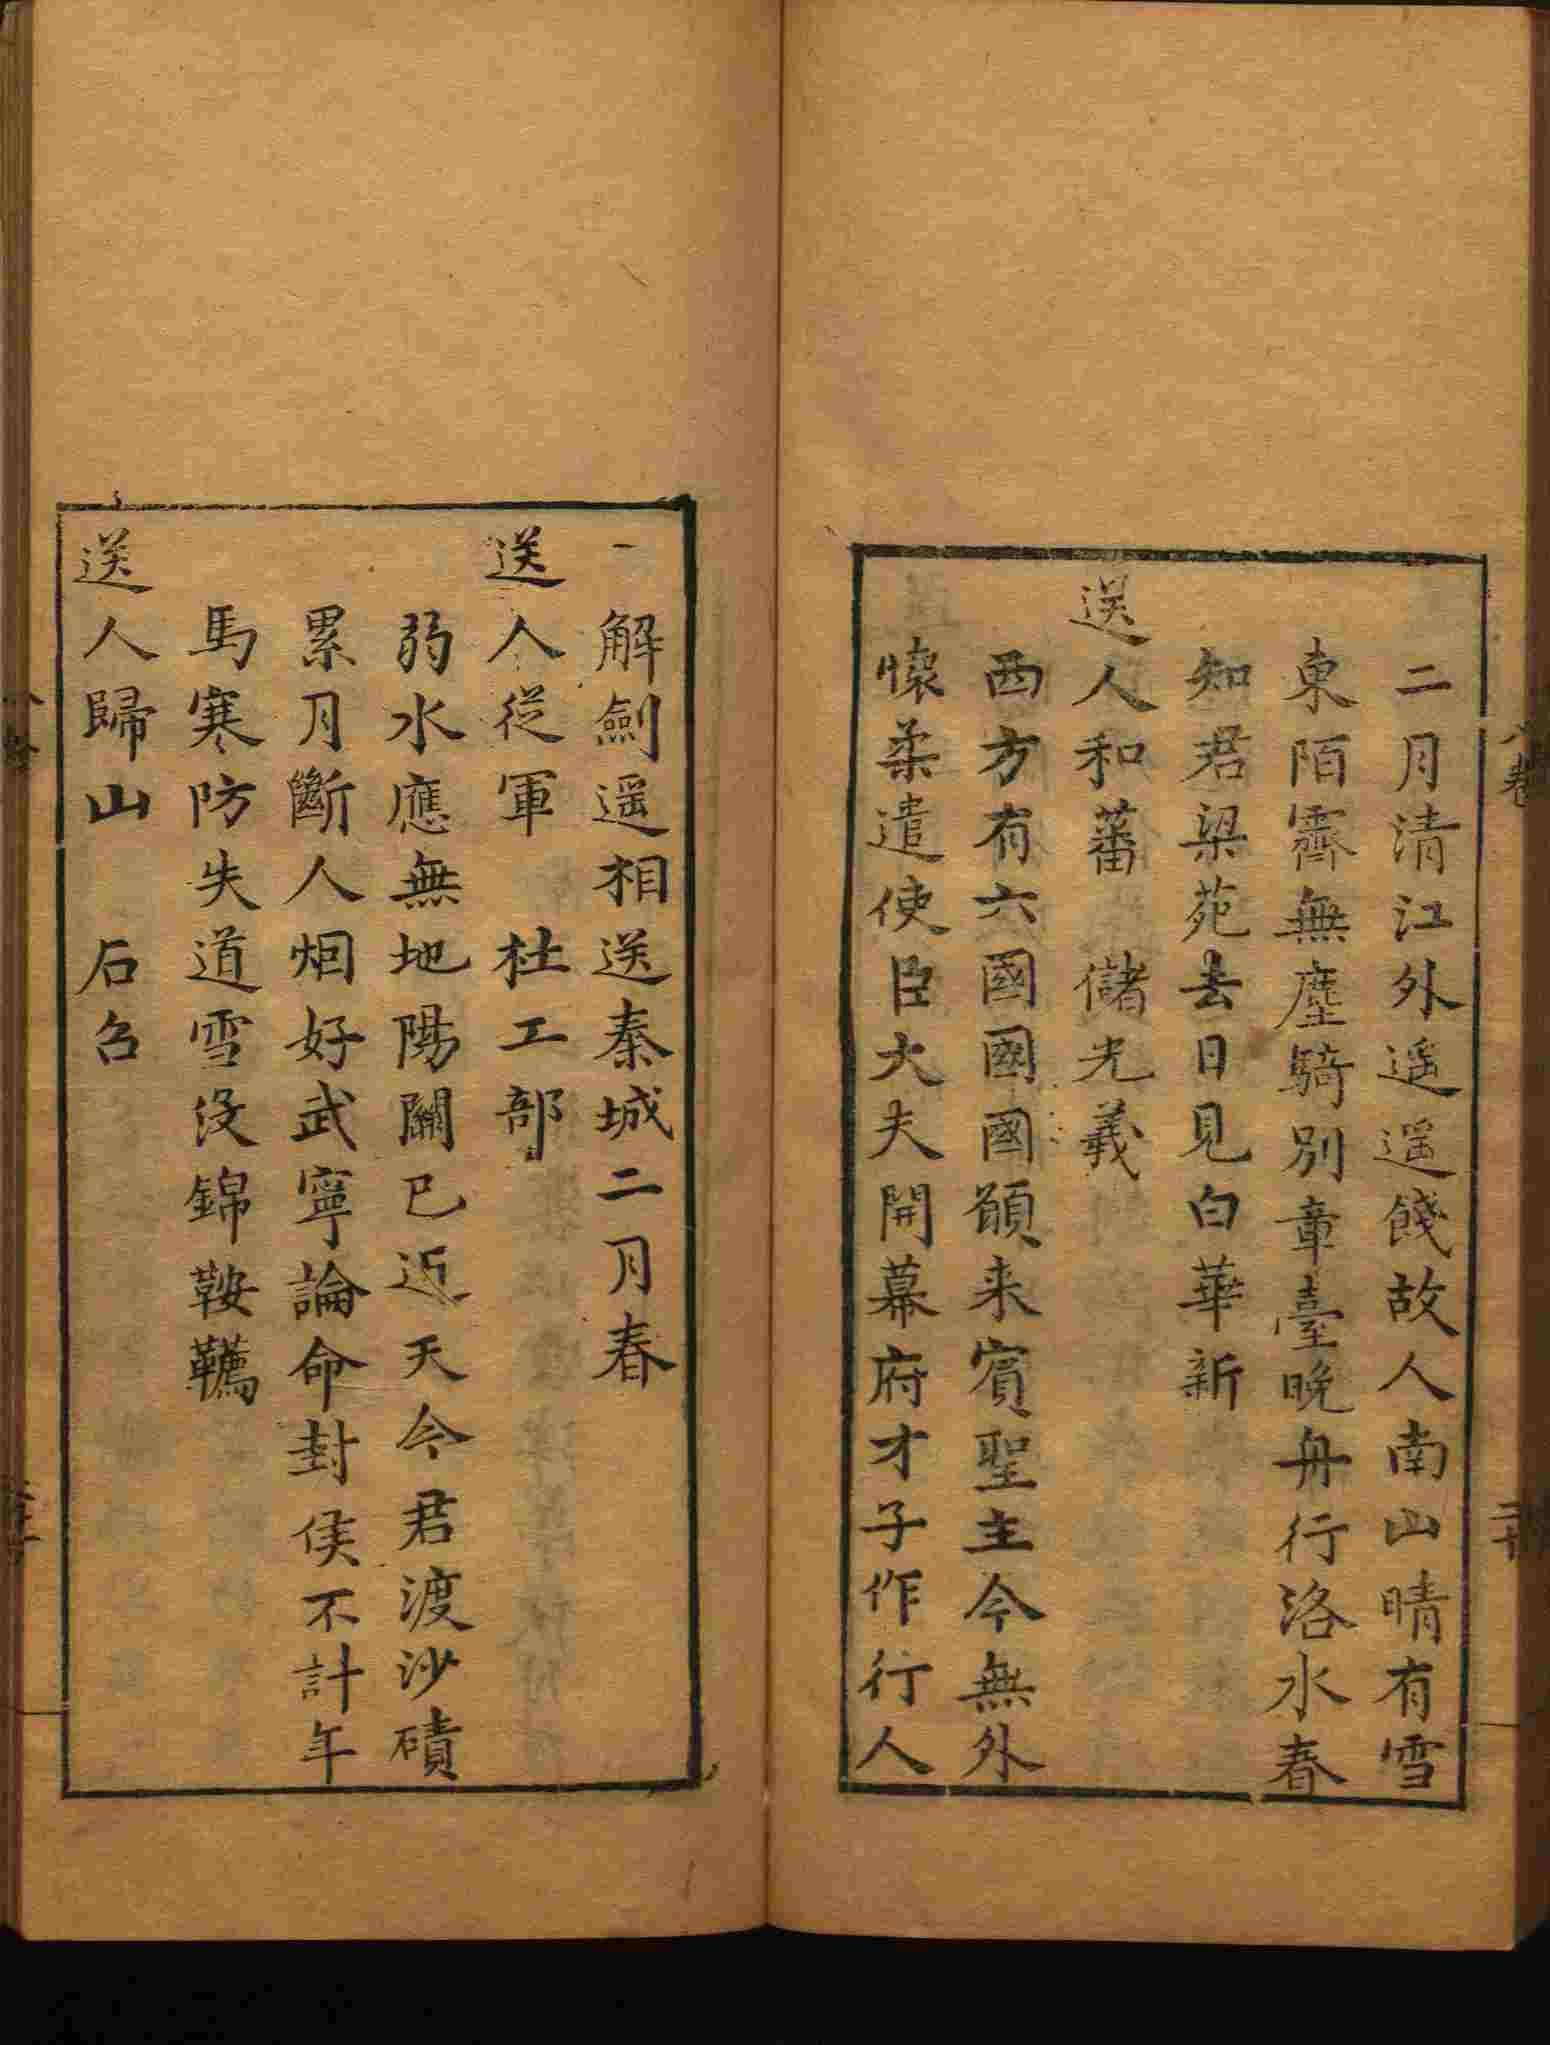 二月清江外遥遥餞故人南山晴有雪
東陌霽無塵騎別章臺晚舟行洛水春
知君梁苑去日見白華新
送人和蕃　儲光羲
西方有六國國國願来賓聖主今無外
懐柔遣使臣大夫開幕府才子作行人
解劍遥相送秦城二月春
送人從軍　杜工部
弱水應無地陽關已近天今君渡沙磧
累月斷人烟好武寧論命封侯不計年
馬寒防失道雪没錦鞍韉
送人歸山　石召